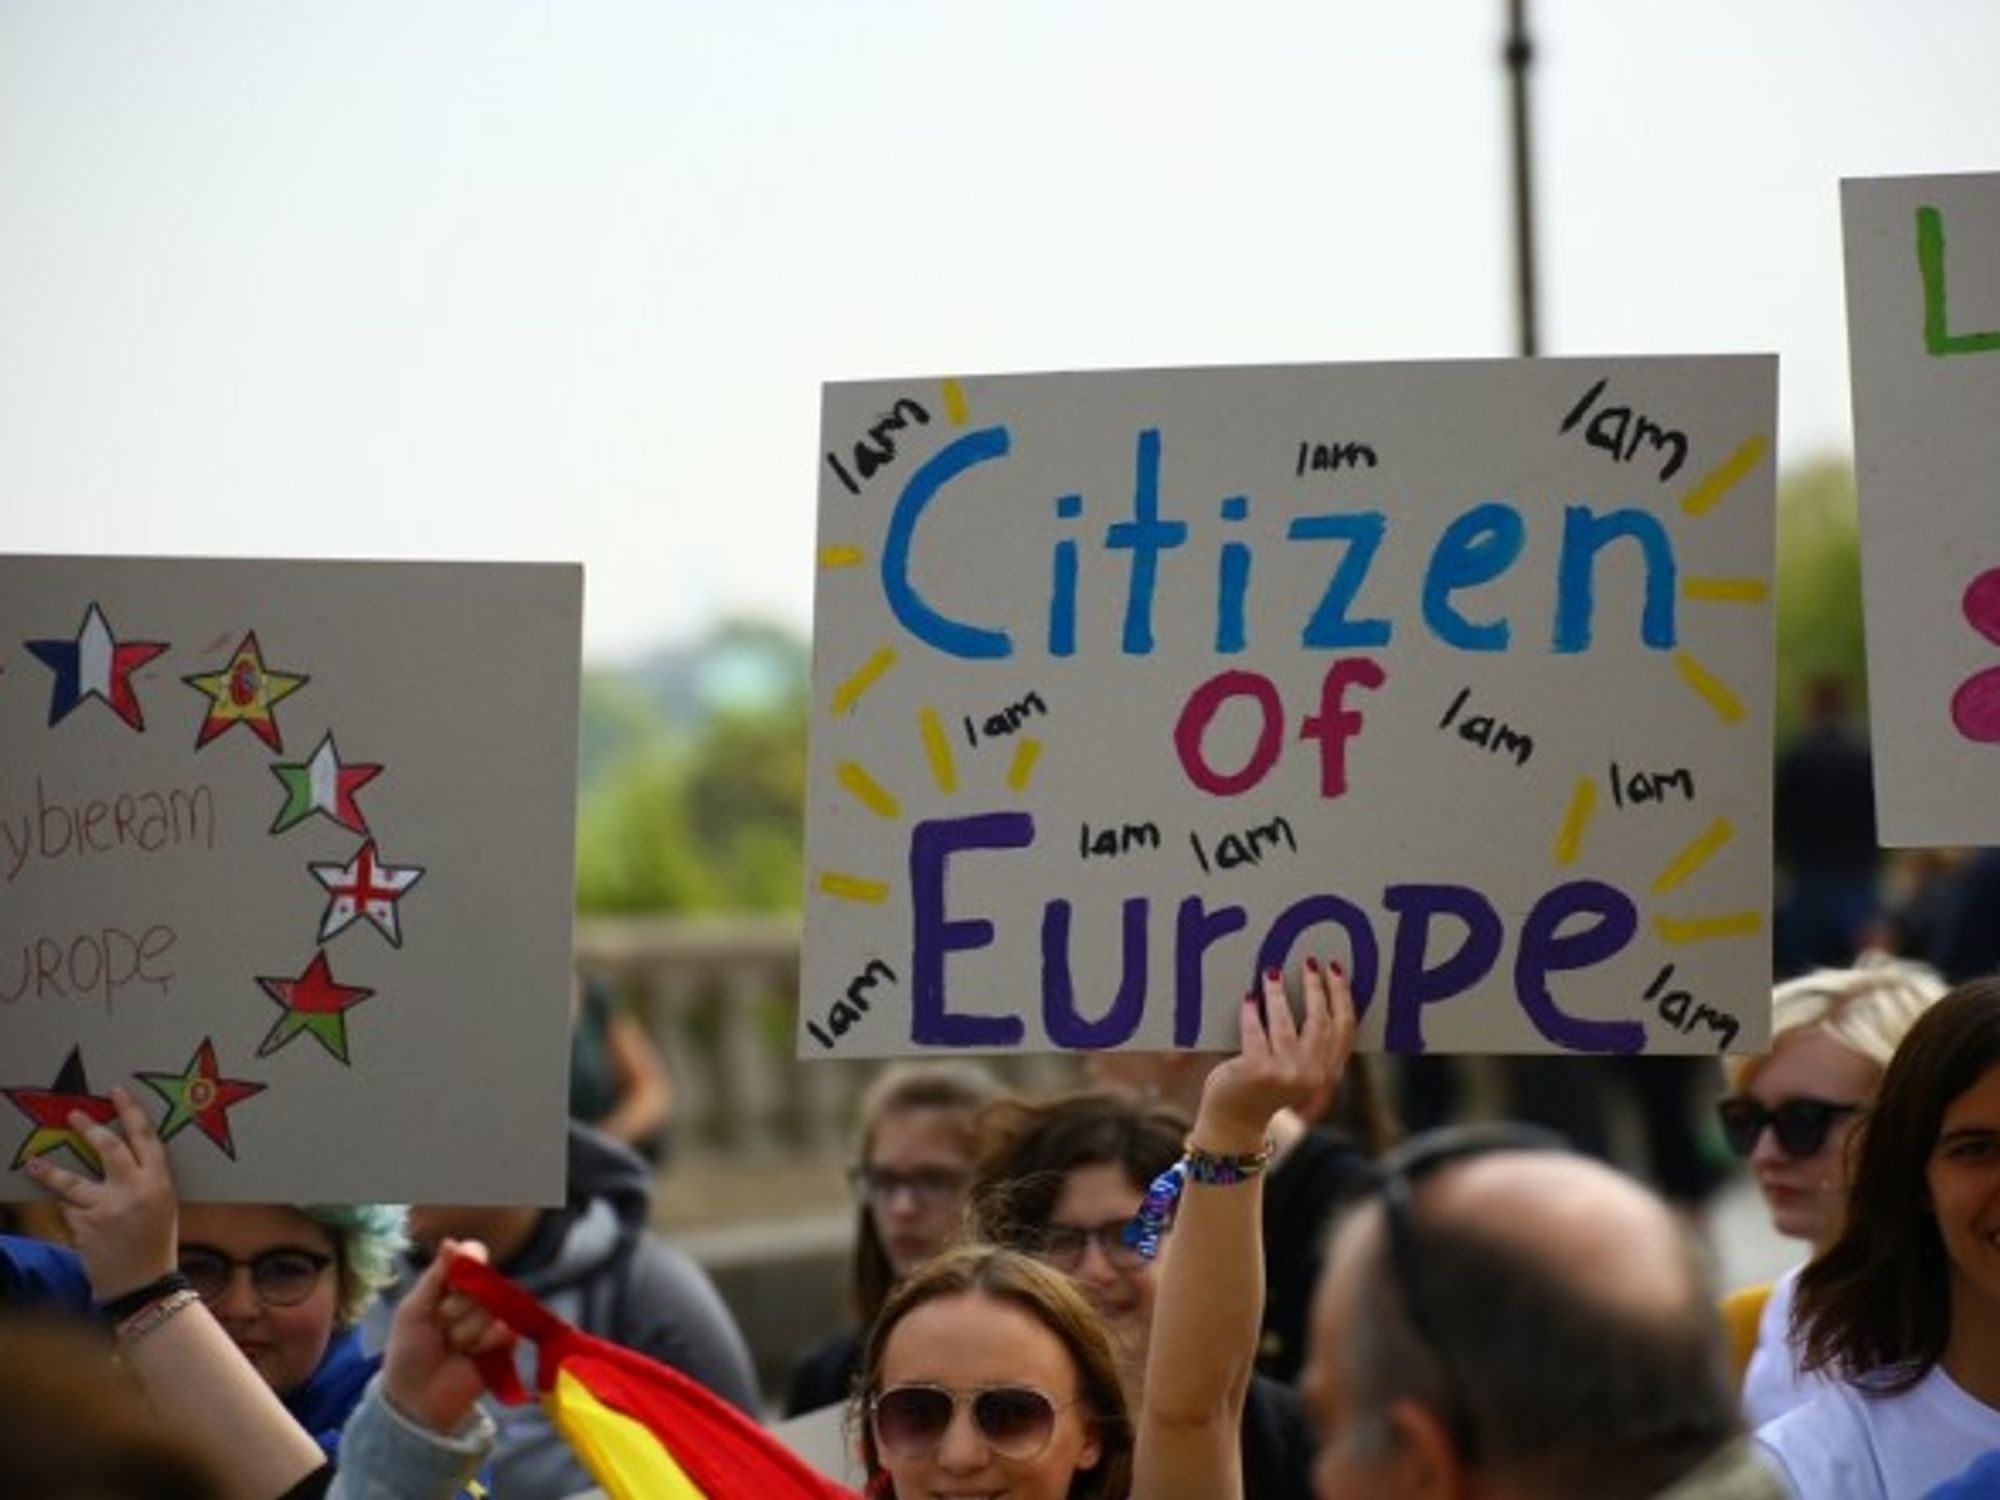 ybieram
uropę
I am
I am
I am
Citizen
of
I am
I am
I am
I am
I am
Europe
I am
I am
L